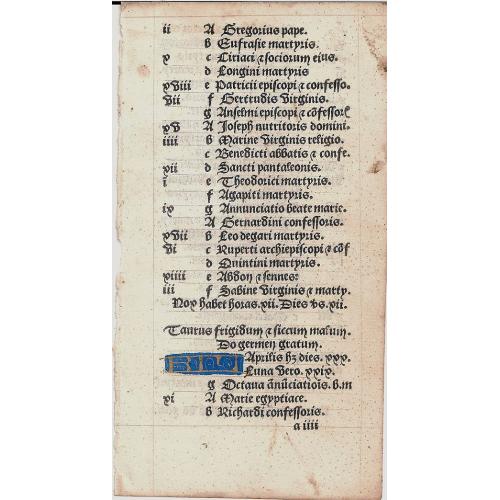 ii A Gregorius pape.
b Eufrasie martyris.
x c Ciriaci ⁊ sociorum eius.
d Longini martyris
xviii e Patricii episcopi ⁊ confesso.
vii f Gertrudis virginis.
g Anselmi episcopi ⁊ cōfessor
xv A Joseph nutritoris domini.
iiii b Marine virginis religio.
c Benedicti abbatis ⁊ confe.
xii d Sancti pantaleonis.
i e Theodorici martyris.
f Agapiti martyris.
ix g Annunciatio beate marie.
A Bernardini confessoris.
xvii b Leodegari martyris.
vi c Ruperti archiepiscopi ⁊ cōf
d Quintini martyris.
xiiii e Abdon ⁊ sennes.
iii f Sabine virginis ⁊ marty.
Nox habet horas.xii. Dies vs.xii.
Taurus frigidum ⁊ siccum malum.
Do germen gratum.
Aprilis hȝ dies. xxx.
Luna vero. xxix.
g Octaua ānūciatiōis.b.m
xi A Marie egyptiace.
b Richardi confessoris.
a iiii